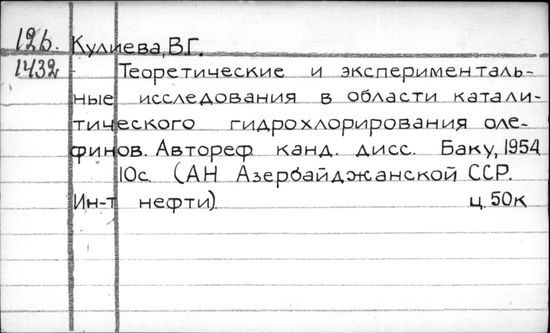 12б. Кулиева, В.Г.
1432 Теоретические и эксперименталь-
ные исследования в области катали-
тического гидрохлорирования оле-
финов. Автореф канд. дисс. Баку, 1954
10с. (АН Азербайджанской ССР.
Ин-т нефти) ц. 50к